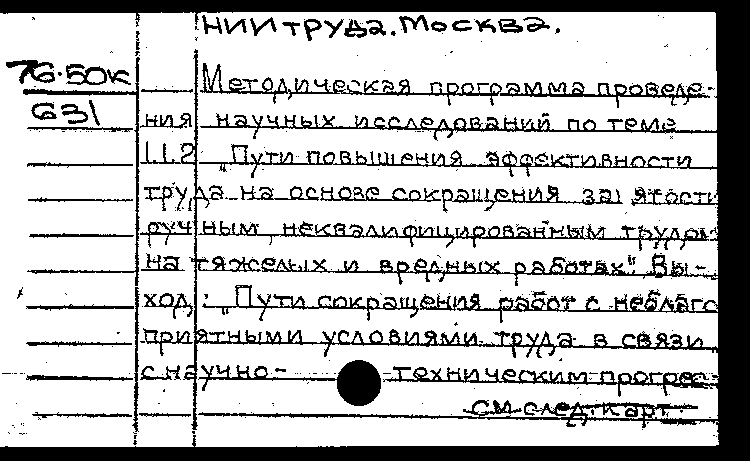 НИИ труда. Москва.
76-50к
631
Методическая программа проведе-
ния научных исследований по теме
1.1.2 „Пути повышения эффективности
труда на основе сокращения занятости
ручным, неквалифицированным трудом
на тяжелых и вредных работах". Вы-
ход: „Пути сокращения работ с неблаго
приятными условиями труда в связи
с научно-техническим прогрес-
см след. карт